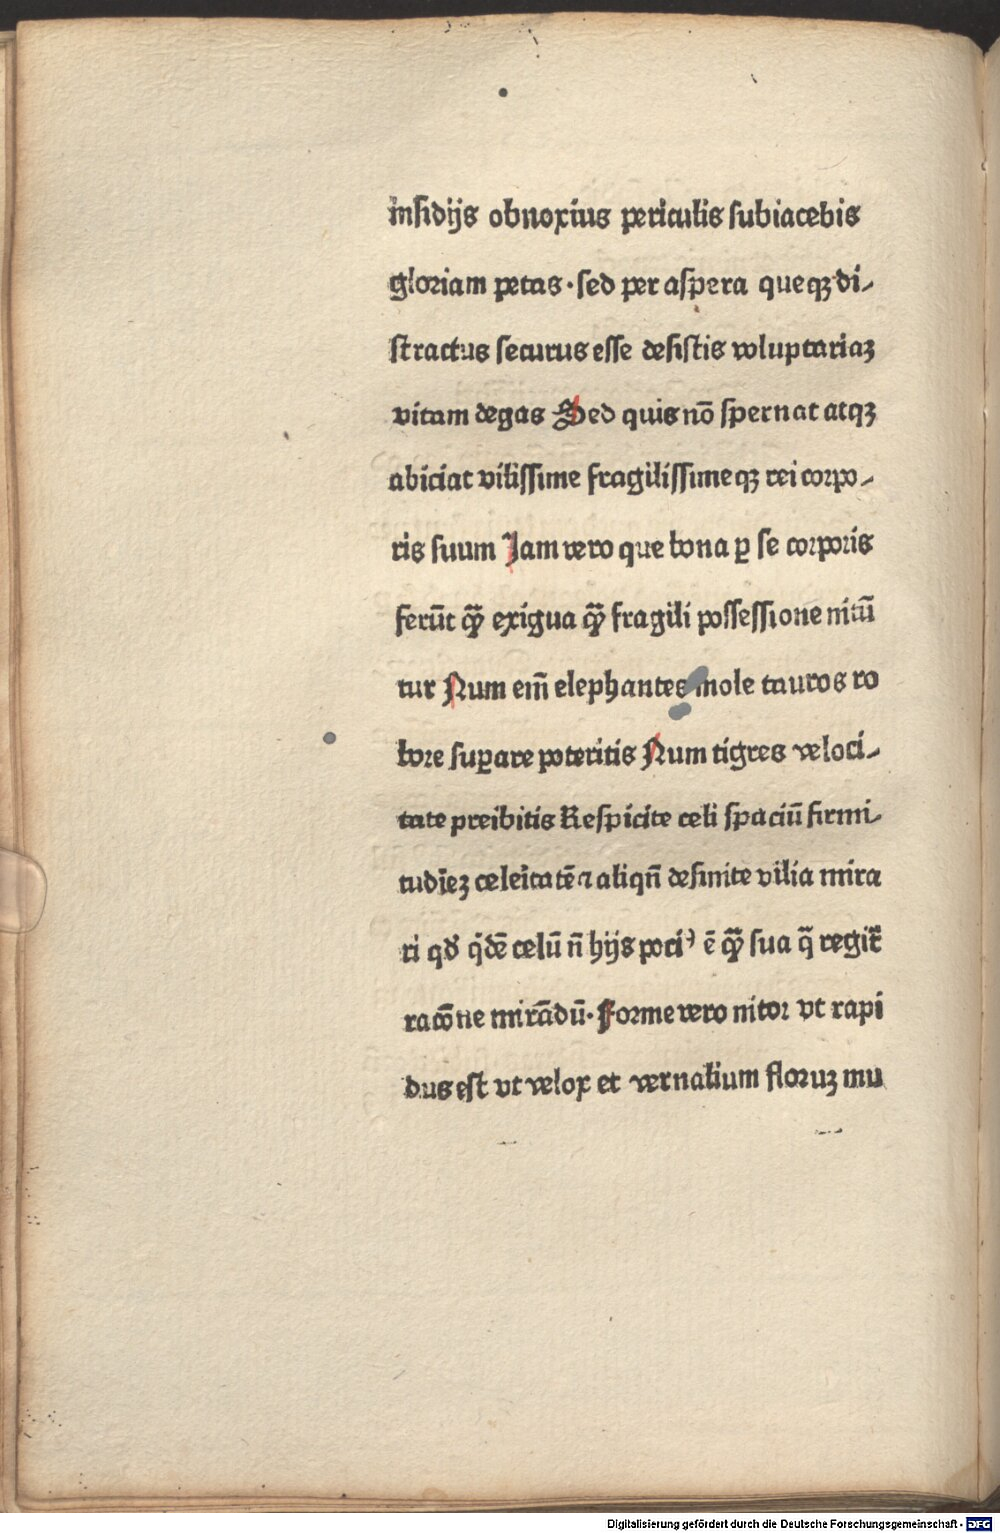 insidijs obnoxius periculis subiacebis
gloriam petas · sed per aspera queqꝫ di⸗
stractus securus esse desistis voluptariaꝫ
vitam degas Sed quis nō spernat atqꝫ
abiciat vilissime fragilissimeqꝫ rei corpo⸗
ris suum Jam vero que bona ꝑ se corporis
ferūt qᷓꝫ exigua qᷓꝫ fragili possessione nitū
tur Num em̄ elephantes mole tauros ro
bore suꝑare poteritis Num tigres veloci⸗
tate preibitis Respicite celi spaciū firmi⸗
tudīeꝫ celeitatē ⁊ aliqn̄ desinite vilia mira
ri qd' q̇dē celū n̄ hijs poci⁹ ē qᷓꝫ sua q̄ regit᷑
racōne mirādū · Forme vero nitor vt rapi
dus est vt velox et vernalium floruꝫ mu
Digitalisierung gefördert durch die Deutsche Forschungsgemeinschaft - DFG